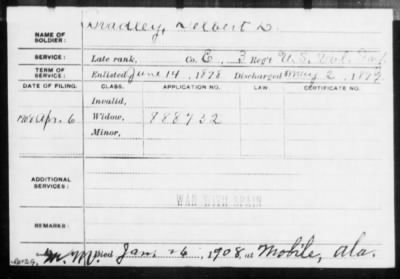 NAME OF SOLDIER: Bradley, Delbert D.
SERVICE: Late rank, Co. E, 3 Reg't U.S. Vol. Inf.
TERM OF SERVICE: Enlisted June 14, 1898. Discharged May 2, 1899
DATE OF FILING. CLASS. APPLICATION NO. LAW CERTIFICATE NO.
Invalid,
1908 Apr. 6 Widow, 888732
Minor,
ADDITIONAL SERVICES:
WAR WITH SPAIN
REMARKS:
Died Jan. 26, 1908, at Mobile, Ala.